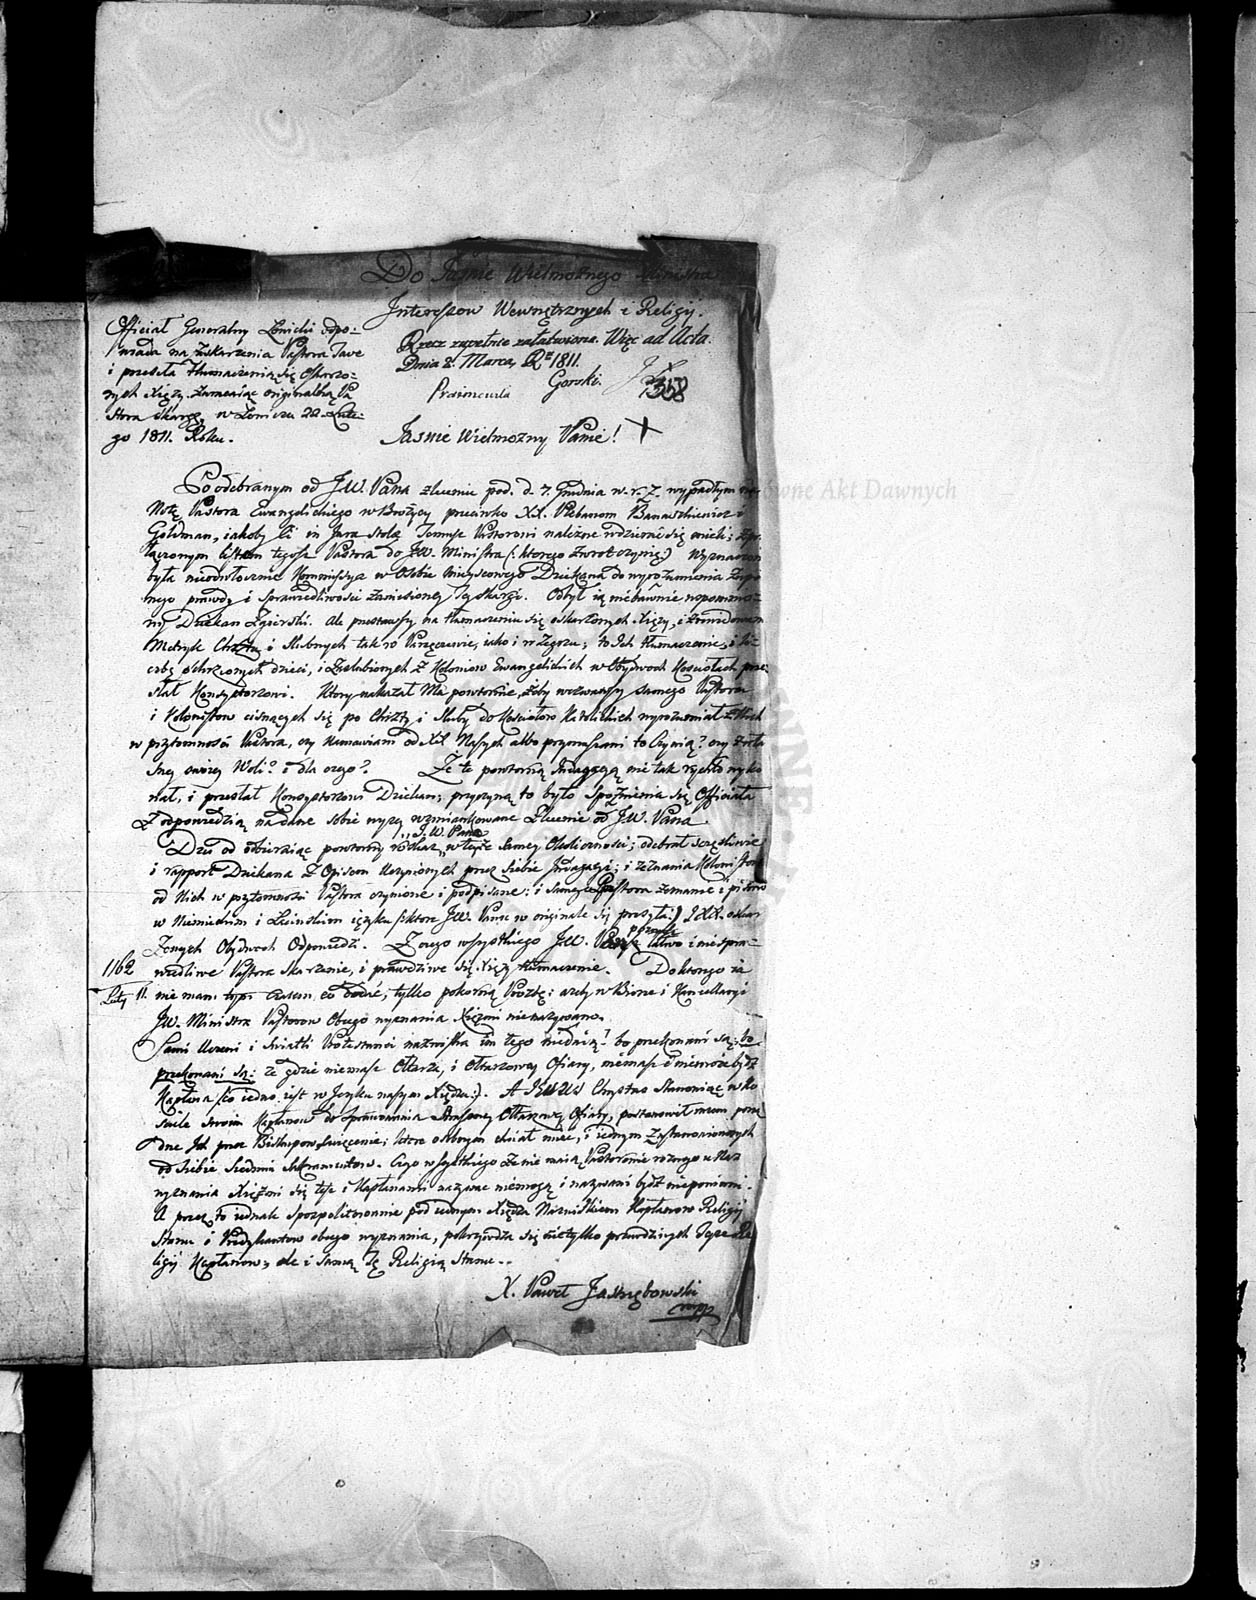 Do Jaśnie Wielmożnego Ministra
Interessow Wewnętrznych i Religij.
Officiał Generalny Łowicki odpo-
wiada na zaskarżenia Pastora
i przesyła tłumaczenia się Oskarżo-
nych Xięży. Zwracaiąc originalną Pa
stora skargę, w Łowiczu 22 Lute-
go 1811. Roku.
Rzecz zupełnie załatwiona. Więc ad Acta.
Dnia 2. Marca, R. 1811.
Gorski.
358
Jaśnie Wielmożny Panie!
Po odebranym od J.W. Pana zleceniu pod. d. 7. Grudnia w. r. z. wypadłym na
Notę Pastora Ewangelickiego w przeciwko XX. Plebanom i
Goldman, iakoby Ci in Jura Stolæ Temuż Pastorowi należne wdzierać się mieli;
łączonym listem tegoż Pastora do J.W. Ministra (: ktorego zwrot czynię:) Wyznaczona
była nieodwłocznie Kommissya w Osobie mieyscowego Dziekana do wyrozumienia zupeł
nego prawdy i sprawiedliwości zaniesioney Tey skargi. Odbył ią niebawnie wspomnio-
ny Dziekan Zgierski. Ale przestawszy na tłumaczeniu się oskarżonych Xięży, i
Metryk Chrztu i Slubnych tak w Parzęczewie, iako i w Zegrzu; to Ich tłumaczenie, i Li
czbę ochrzconych dzieci, i zaślubionych z Kolonistow Ewangelickich w Obydwoch Kosciołach prze-
słał Konsystorzowi. Ktory nakazał Mu powtornie, żeby wezwawszy samego Pastora
i Kolonistow cisnących się po Chrzty i Sluby do Kosciołow Katolickich wyrozumiał z Nich
w przytomności Pastora, czy namawiani od XX. Naszych albo przymuszani to Czynią? czy z wła
sney swoiey Woli? i dla czego? Ze te powtorną Indagacyą nie tak rychło wyko
nał, i przesłał Konsystorzowi Dziekan; przyczyną to było spoźnienia się Officiała
z odpowiedzią na dane sobie wyżey wzmiankowane Zlecenie od J.W. Pana.
J.W. Pana
Dziś od odbieraiąc powtorny rozkaz w teyże samey Okoliczności; odebrał szczęśliwie
i rapport Dziekana z Opisem uczynionych przez siebie Indagacyi; i zeznania Kolonistow
od Nich w przytomności Pastora czynione i podpisane: i samego Pastora zeznanie i pismo
w Niemieckim i Łacińskim ięzyku (: ktore J.W. Panu w originale się przesyła:) I XX. oskar
żonych Obydwoch Odpowiedzi. Z czego wszystkiego J.W. Pan pozna łatwo i niespra-
wiedliwe Pastora skarżenie, i prawdziwe się Xięży tłumaczenie. Do ktorego ia
1162
Luty 11.
nie mam tym czasem co dodać; tylko pokorną Prozbę: ażeby w Biorze i Kancellaryi
J.W. Ministra Pastorow Obcego wyznania Xięźmi nienazywano.
Sami Uczeni i Swiatli Protestanci nazwiska im tego niedaią? bo przekonani są: bo
przekonani są: że gdzie niemasz Ołtarza, i Ołtarzowey Ofiary, niemasz i niemoże bydź
Kapłana (co iedno iest w Języku naszym Xiędza:). A Jezus Chrystus Stanowiąc w Ko
ściele Swoim Kapłanow do sprawowania Strasznej Ołtarzowey Ofiary, postanowił
dne Ich przez Biskupow święcenie; ktore osobnym chciał mieć, i iednym z ustanowionych
od siebie siedmiu Sakramentow. Czego wszystkiego że nie maią Pastorowie roznego u Nas
wyznania Xięźmi się też i Kapłanami nazywać niemogą i nazwani bydź niepowinni.
A przez to iednak spospolitowanie pod iednym Xiędza Nazwiskiem Kapłanow Religij
Stanu i Predykantow obcego wyznania, pokrzywdza się nietylko prawdziwych Teyże Re
ligij Kapłanow, ale i samą Tę Religią Stanu.
X. Paweł Jastrzębowski
mpp
Główne Akt Dawnych